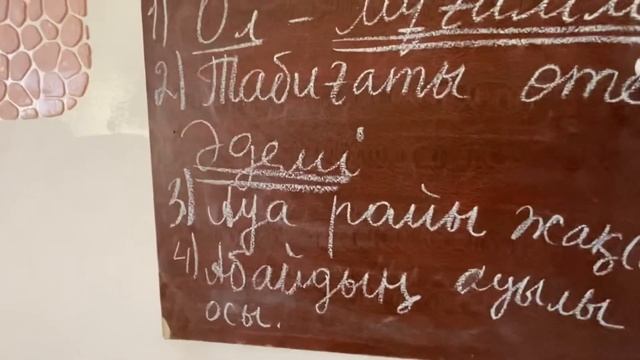 1) Ол - мұғалім
2) Табиғаты өте
Әдемі
3) Ауа райы жақс
4) Абайдың ауылы
осы.